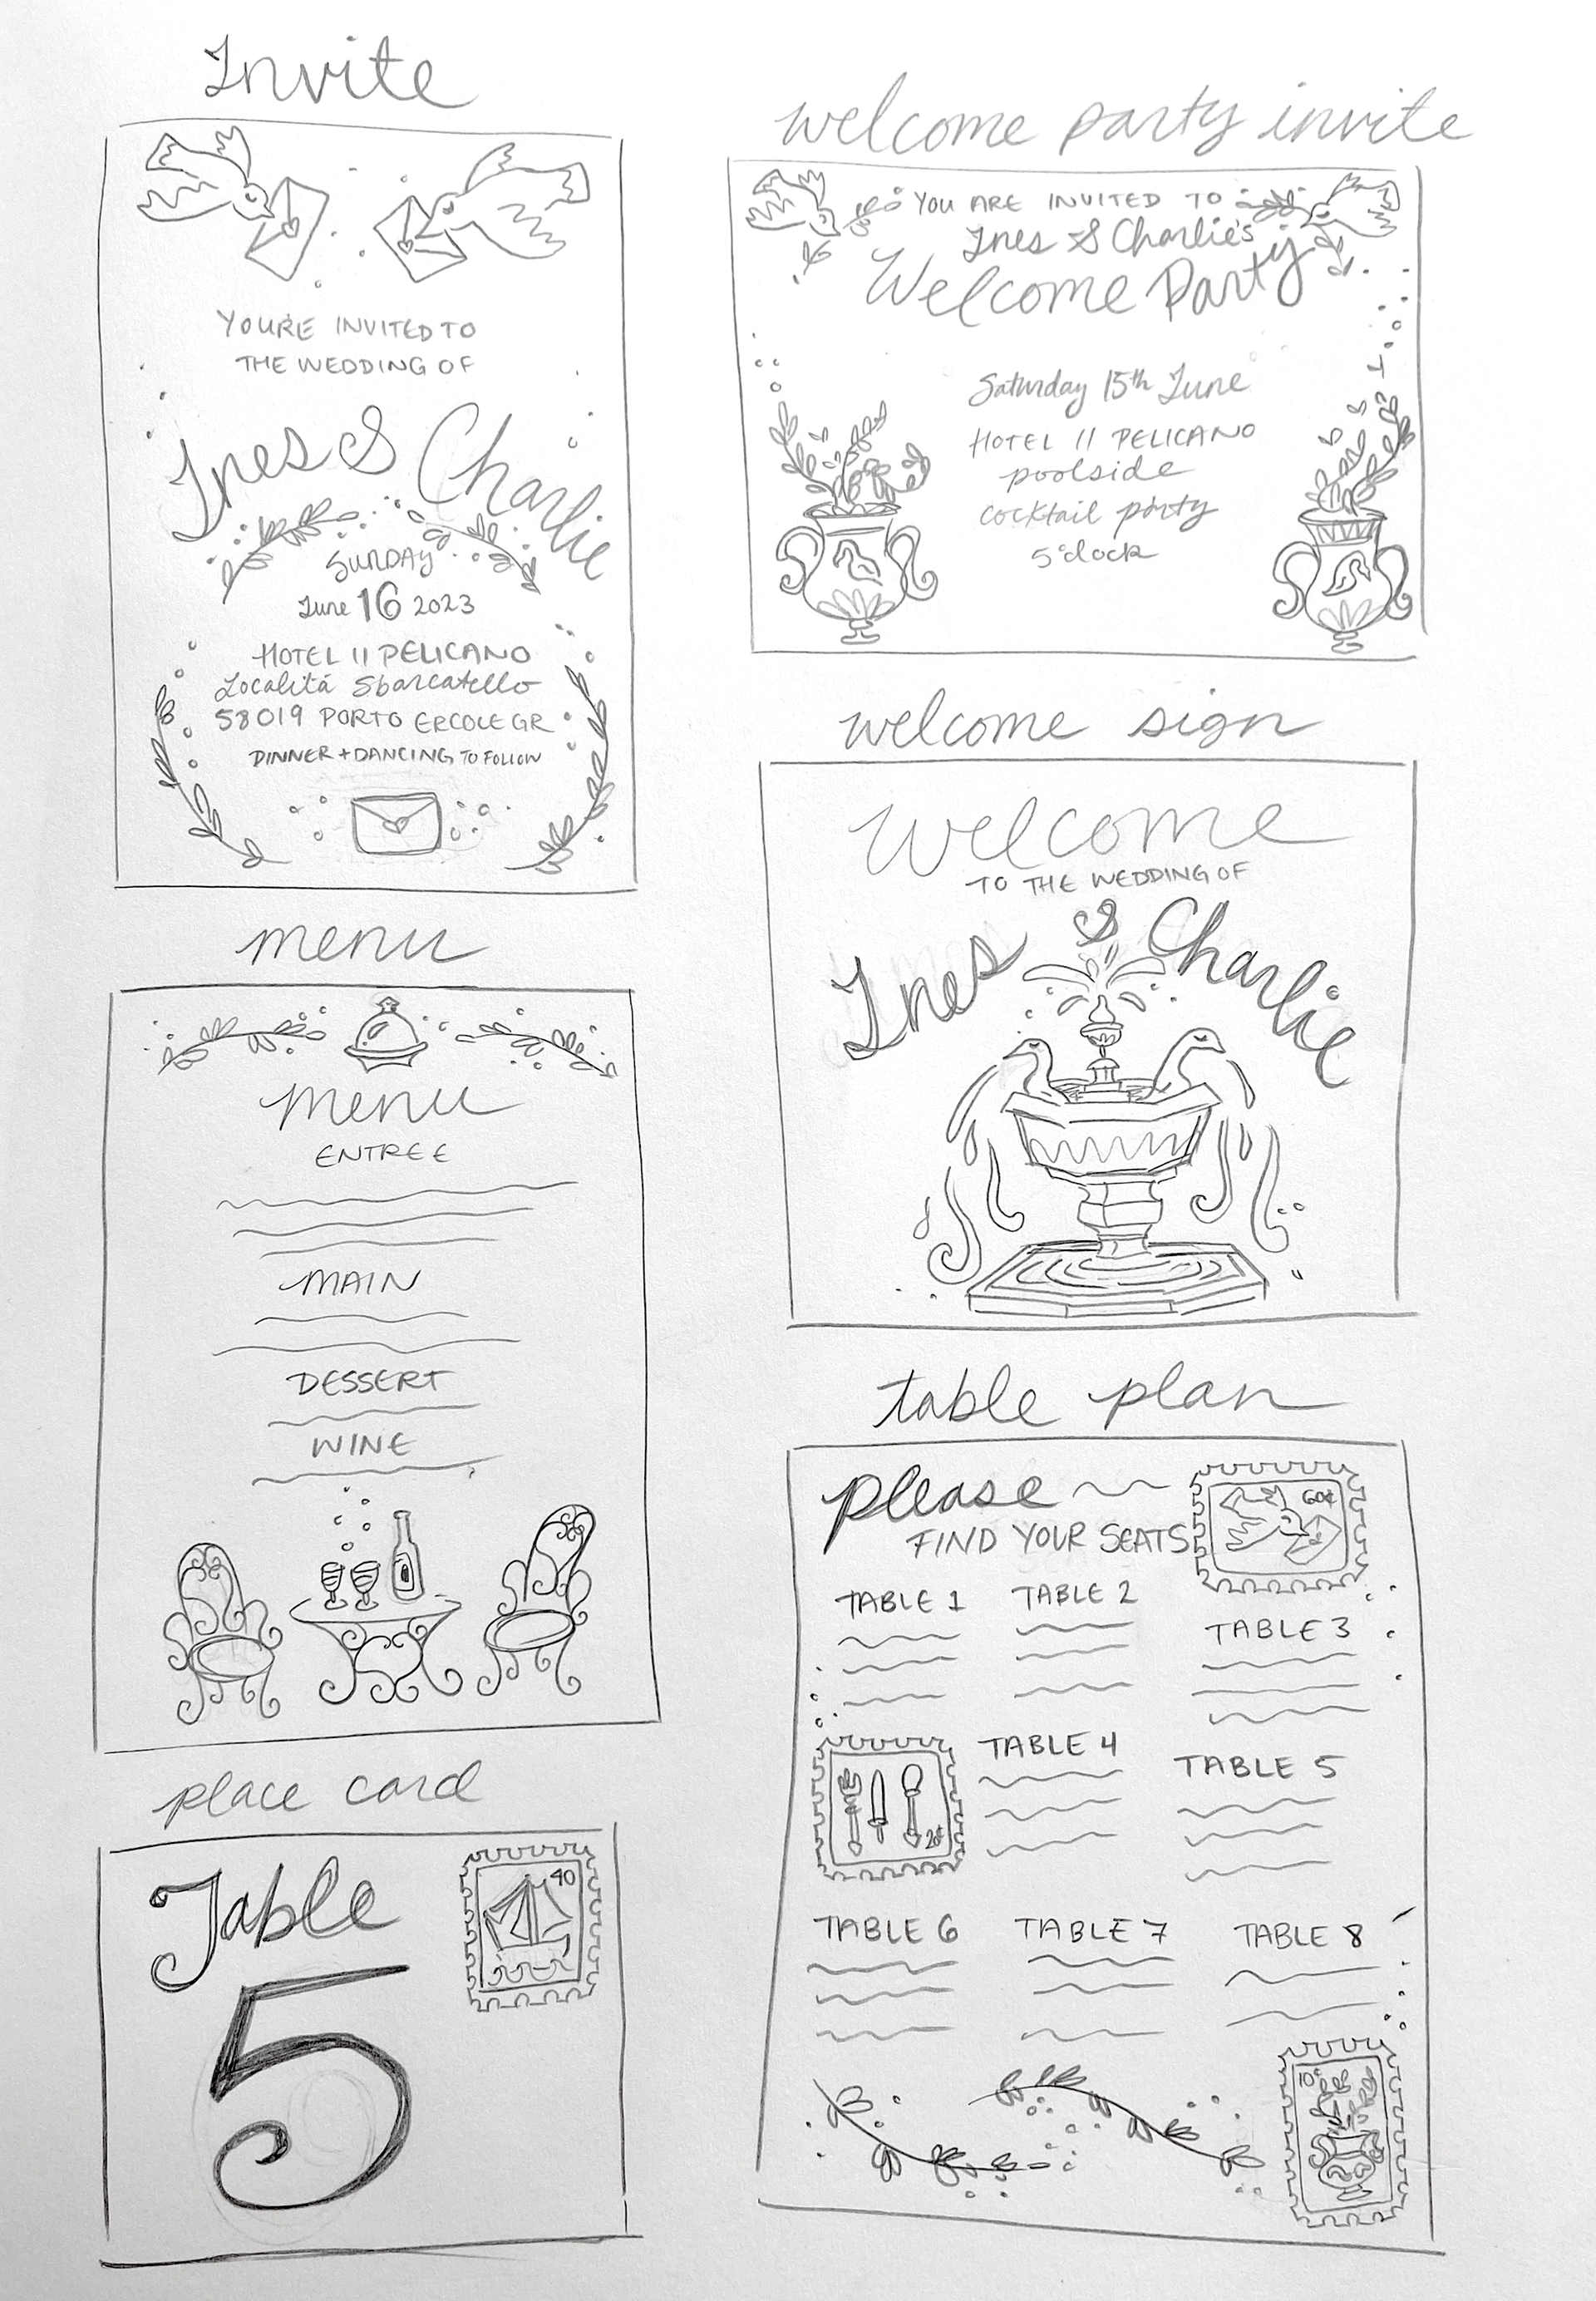 Invite
YOU'RE INVITED TO
THE WEDDING OF
Ines & Charlie
SUNDAY
June 16 2023
HOTEL II PELICANO
Localitá Sbarcatello
58019 PORTO ERCOLE GR
DINNER + DANCING TO FOLLOW
menu
menu
ENTREE
MAIN
DESSERT
WINE
place card
Table
40
5
welcome party invite
YOU ARE INVITED TO
Ines & Charlie's
Welcome Party
Saturday 15th June
HOTEL II PELICANO
poolside
cocktail party
5 o'clock
welcome sign
Welcome
TO THE WEDDING OF
Ines & Charlie
table plan
please
60¢
FIND YOUR SEATS
TABLE 1 TABLE 2
TABLE 3
TABLE 4
TABLE 5
2¢
TABLE 6 TABLE 7 TABLE 8
10¢